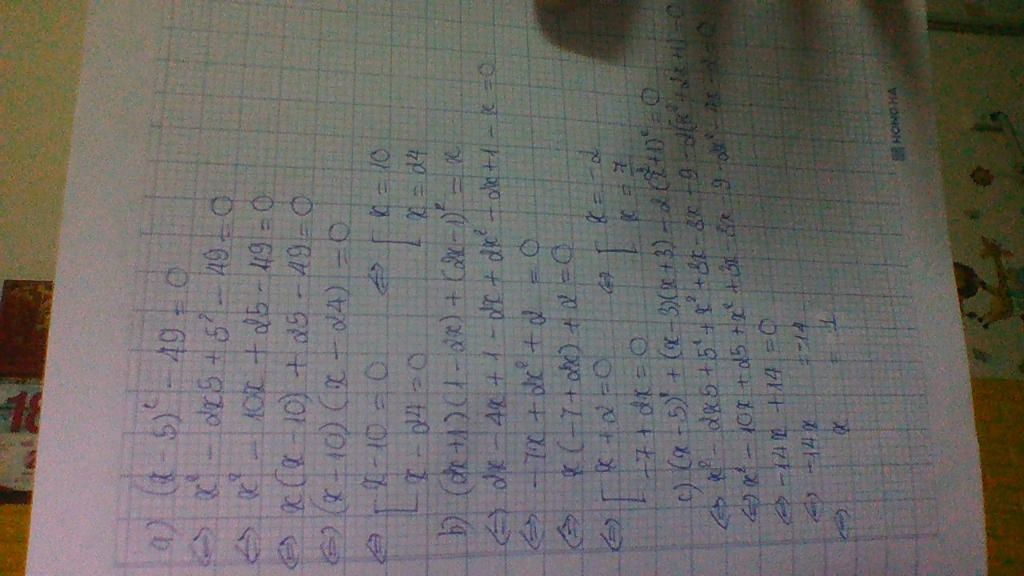 a) (x - 5)² - 49 = 0
⇔ x² - 2x5 + 5² - 49 = 0
⇔ x² - 10x + 25 - 49 = 0
⇔ x(x - 10) + 25 - 49 = 0
⇔ (x - 10)(x - 24) = 0
⇔ [ x - 10 = 0 ⇔ [ x = 10
[ x - 24 = 0 [ x = 24
b) (2x + 1)(1 - 2x) + (2x - 1)² = x
⇔ 2x - 4x + 1 - 2x + 2x² - 2x + 1 - x = 0
⇔ -7x + 2x² + 2 = 0
⇔ x(-7 + 2x) + 2 = 0
⇔ [ x + 2 = 0 ⇔ [ x = -2
[ -7 + 2x = 0 [ x = 7/2
c) (x - 5)² + (x - 3)(x + 3) - 2(x + 1)² = 0
⇔ x² - 2x5 + 5² + x² + 3x - 3x - 9 - 2(x² + 2x + 1) = 0
⇔ x² - 10x + 25 + x² + 3x - 3x - 9 - 2x² - 4x - 2 = 0
⇔ -14x + 14 = 0
⇔ -14x = -14
⇔ x = 1
HONG HA
18